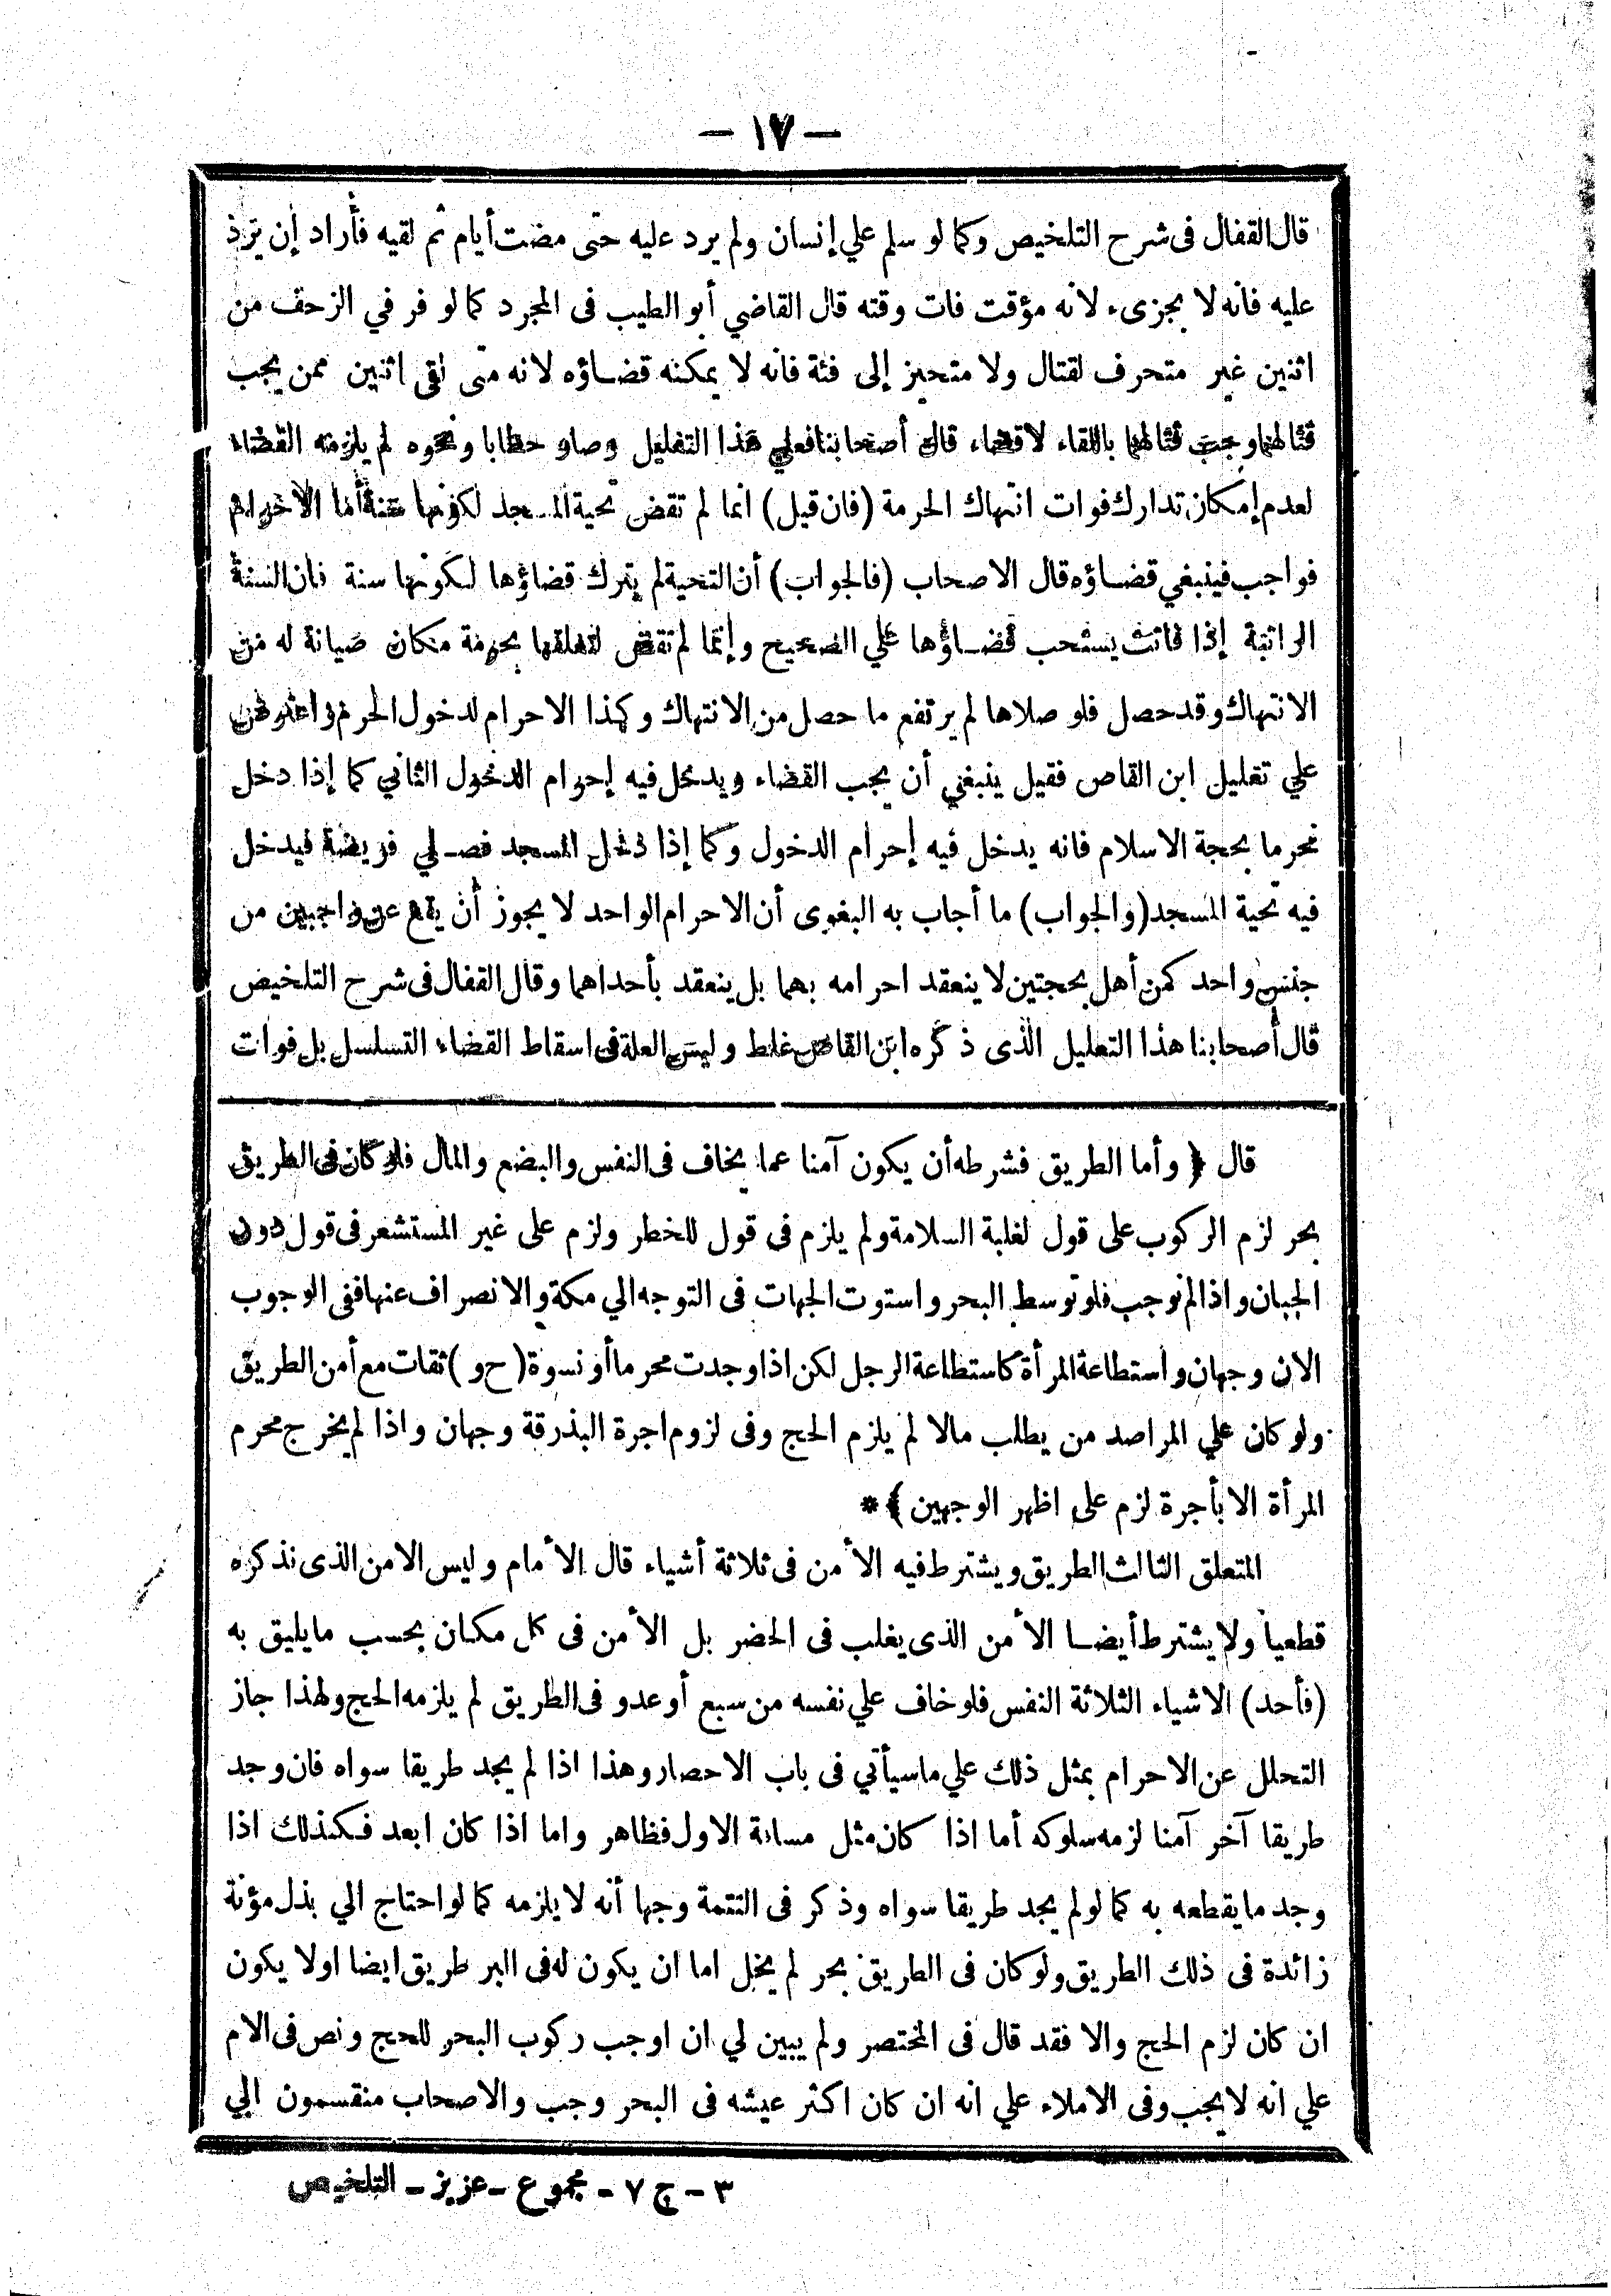 — ١٧ —
قال القفال فى شرح التلخيص وكما لو سلم علي إنسان ولم يرد عليه حتى مضت أيام ثم لقيه فأراد إن يرد
عليه فانه لا يجزىء لانه مؤقت فات وقته قال القاضي أبو الطيب فى المجرد كما لو فر في الزحف من
اثنين غير متحرف لقتال ولا متحيز إلى فئة فانه لا يمكنه قضاؤه لانه متى لقى اثنين ممن يجب
قتالهما وجب قتالهما باللقاء لا قضاء قال أصحابنا فعلي هذا التعليل وصار حطابا ونحوه لم يلزمه القضاء
لعدم إمكان تدارك فوات انتهاك الحرمة (فان قيل) انما لم تقض تحية المسجد لكونها سنة أما الاحرام
فواجب فينبغي قضاؤه قال الاصحاب (فالجواب) أن التحية لم يترك قضاؤها لكونها سنة فان السنة
الراتبة إذا فاتت يستحب قضاؤها علي الصحيح وإنما لم تقض لتعلقها بحرمة مكان صيانة له من
الانتهاك وقد حصل فلو صلاها لم يرتفع ما حصل من الانتهاك وكهذا الاحرام لدخول الحرم واعترض
علي تعليل ابن القاص فقيل ينبغي أن يجب القضاء ويدخل فيه إحرام الدخول الثاني كما إذا دخل
محرما بحجة الاسلام فانه يدخل فيه إحرام الدخول وكما إذا دخل المسجد فصلي فريضة فيدخل
فيه تحية المسجد (والجواب) ما أجاب به البغوى أن الاحرام الواحد لا يجوز أن يقع عن واجبين من
جنس واحد كمن أهل بحجتين لا ينعقد احرامه بهما بل ينعقد بأحداهما وقال القفال فى شرح التلخيص
قال أصحابنا هذا التعليل الذى ذكره ابن القاص غلط وليس العلة فى اسقاط القضاء التسلسل بل فوات
قال ﴿ وأما الطريق فشرطه أن يكون آمنا عما يخاف فى النفس والبضع والمال فلو كان فى الطريق
بحر لزم الركوب على قول لغلبة السلامة ولم يلزم فى قول للخطر ولزم على غير المستشعر فى قول دون
الجبان واذا لم نوجب فلو توسط البحر واستوت الجهات فى التوجه الي مكة والانصراف عنها ففى الوجوب
الان وجهان واستطاعة المرأة كاستطاعة الرجل لكن اذا وجدت محرما أو نسوة (ح و) ثقات مع أمن الطريق
ولو كان علي المراصد من يطلب مالا لم يلزم الحج وفى لزوم اجرة البذرقة وجهان واذا لم يخرج محرم
المرأة الا بأجرة لزم على اظهر الوجهين ﴾ *
المتعلق الثالث الطريق ويشترط فيه الأمن فى ثلاثة أشياء قال الأمام وليس الامن الذى نذكره
قطعياً ولا يشترط أيضا الأمن الذى يغلب فى الحضر بل الأمن فى كل مكان بحسب ما يليق به
(فأحد) الاشياء الثلاثة النفس فلو خاف علي نفسه من سبع أو عدو فى الطريق لم يلزمه الحج ولهذا جاز
التحلل عن الاحرام بمثل ذلك علي ما سيأتي فى باب الاحصار وهذا اذا لم يجد طريقا سواه فان وجد
طريقا آخر آمنا لزمه سلوكه أما اذا كان مثل مسافة الاول فظاهر واما اذا كان ابعد فكذلك اذا
وجد ما يقطعه به كما لو لم يجد طريقا سواه وذكر فى التتمة وجها أنه لا يلزمه كما لو احتاج الي بذل مؤنة
زائدة فى ذلك الطريق ولو كان فى الطريق بحر لم يخل اما ان يكون له فى البر طريق ايضا اولا يكون
ان كان لزم الحج والا فقد قال فى المختصر ولم يبين لي ان اوجب ركوب البحر للحج ونص فى الام
علي انه لا يجب وفى الاملاء علي انه ان كان اكثر عيشه فى البحر وجب والاصحاب منقسمون الي
٣ – ج ٧ – مجموع – عزيز – التلخيص